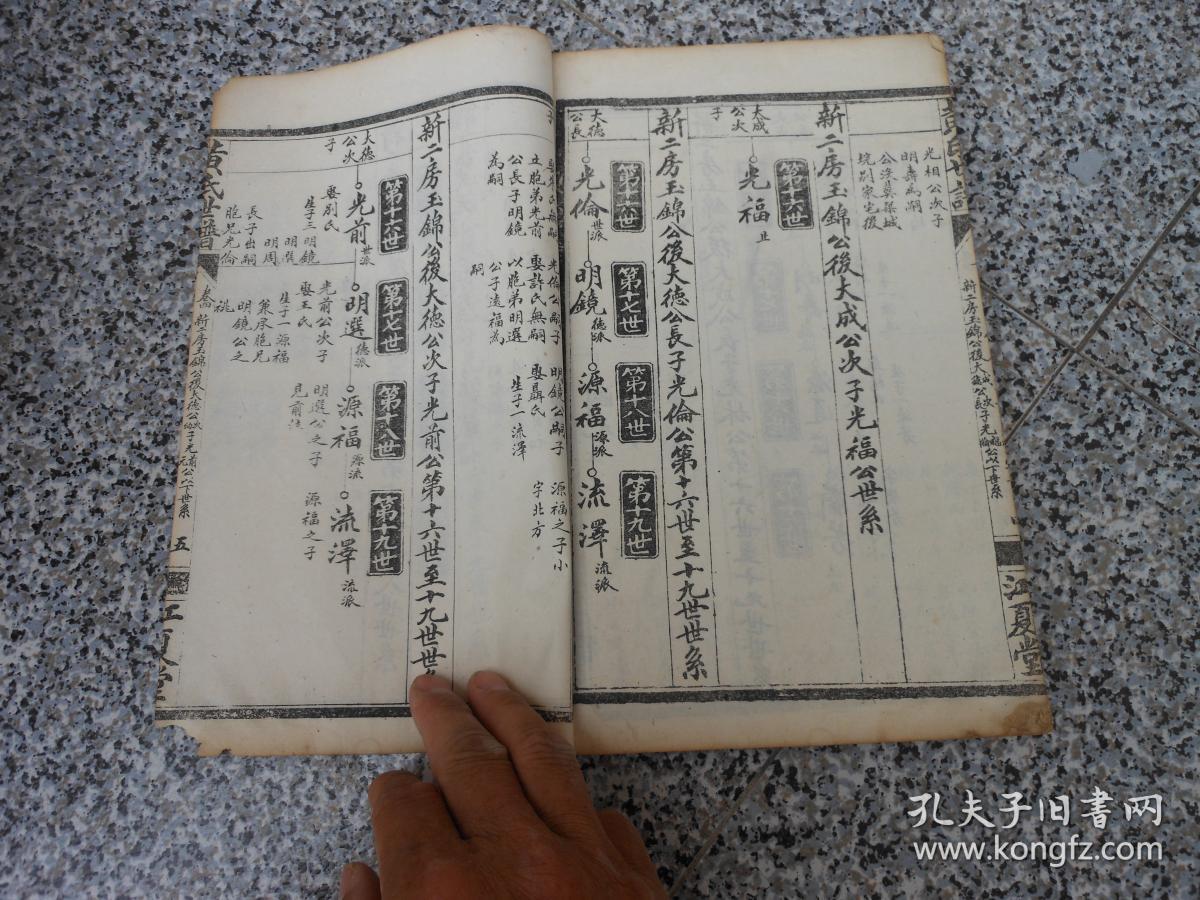 光相公次子
明壽為嗣
新二房玉錦公後大成公次子光福公世系
第十六世
大成
公次
子
光福
止
新二房玉錦公後大德公長子光倫公第十六世至十九世世系
第十六世
第十七世
第十八世
第十九世
大德
公長
光倫
世派
明鏡
德派
源福
源派
流澤
流派
子
立胞弟光前
公長子明鏡
為嗣
光倫公嗣子
娶許氏無嗣
以胞弟明選
公子源福為
嗣
明鏡公嗣子
娶聶氏
生子一流澤
源福之子小
字北方
新二房玉錦公後大德公次子光前公第十六世至十九世世系
第十六世
第十七世
第十八世
第十九世
大德
公次
子
光前
世派
明選
德派
源福
源派
流澤
流派
娶別氏
生子三明鏡
明選
明周
長子出嗣
胞兄光倫
光前公次子
娶王氏
生子一源福
兼承胞兄
明鏡公之
祧
明選公之子
見前註
源福之子
黃氏世譜
五
江夏堂
江夏堂
孔夫子旧书网
www.kongfz.com